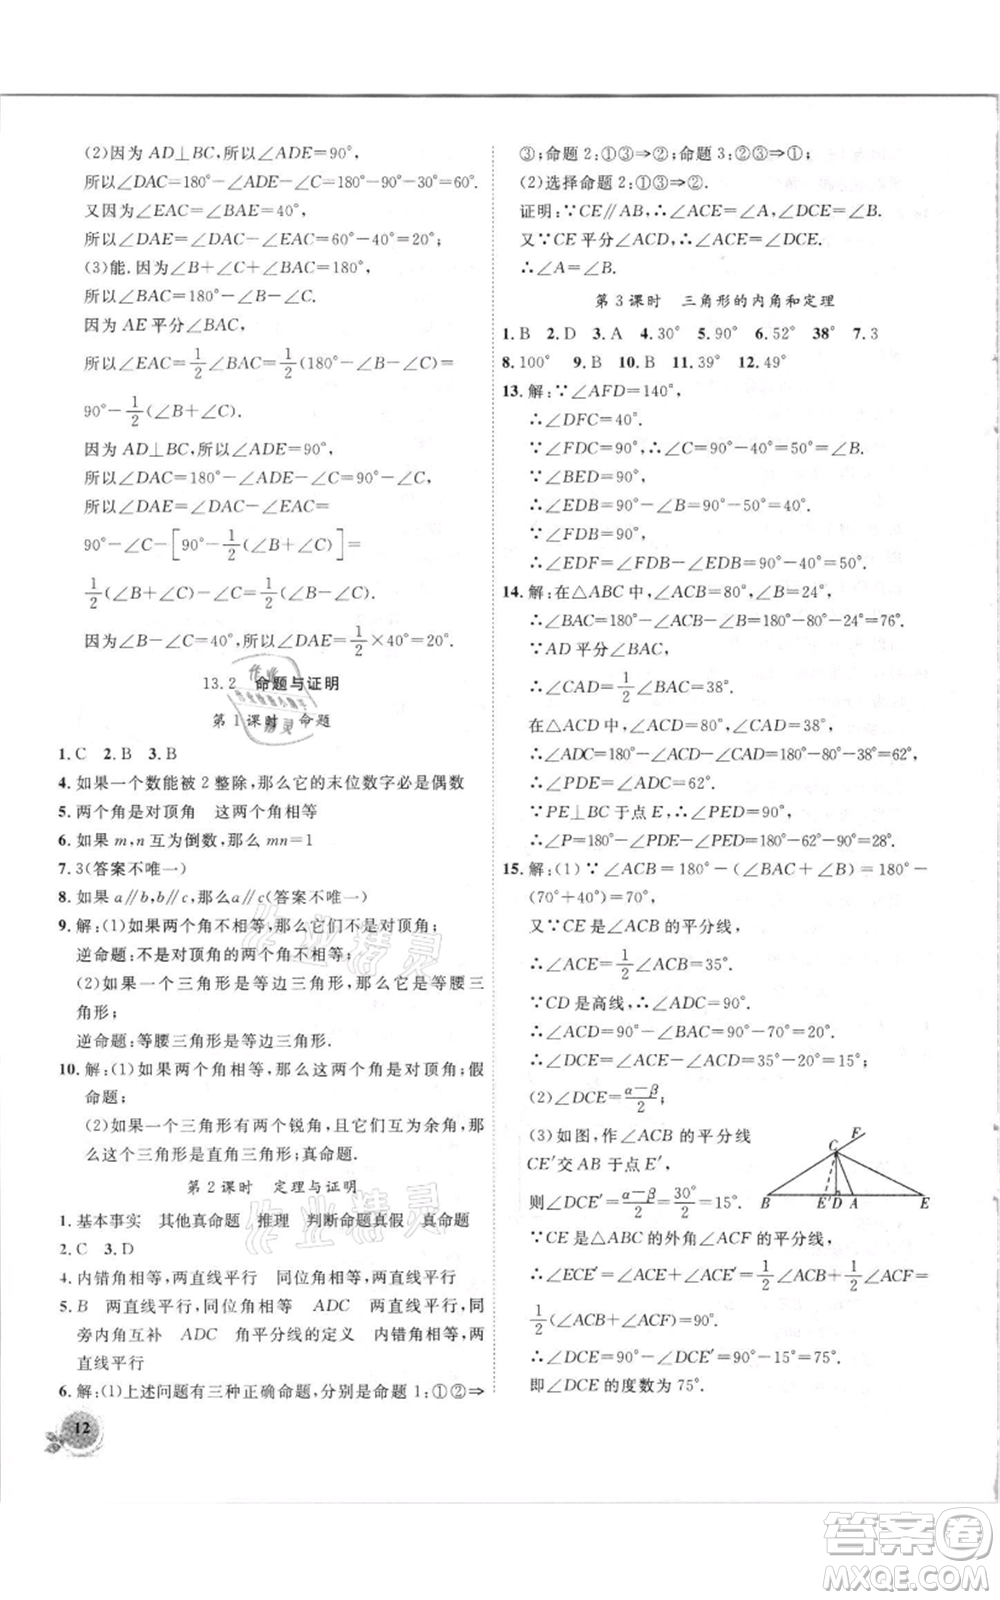 (2)因为 AD⊥BC,所以∠ADE=90°,
所以∠DAC=180°-∠ADE-∠C=180°-90°-30°=60°.
又因为∠EAC=∠BAE=40°,
所以∠DAE=∠DAC-∠EAC=60°-40°=20°;
(3)能.因为∠B+∠C+∠BAC=180°,
所以∠BAC=180°-∠B-∠C.
因为 AE 平分∠BAC,
所以∠EAC=1/2∠BAC=1/2(180°-∠B-∠C)=
90°-1/2(∠B+∠C).
因为 AD⊥BC,所以∠ADE=90°,
所以∠DAC=180°-∠ADE-∠C=90°-∠C,
所以∠DAE=∠DAC-∠EAC=
90°-∠C-[90°-1/2(∠B+∠C)]=
1/2(∠B+∠C)-∠C=1/2(∠B-∠C).
因为∠B-∠C=40°,所以∠DAE=1/2×40°=20°.
13.2 命题与证明
第1课时 命题
1.C 2.B 3.B
4.如果一个数能被 2 整除,那么它的末位数字必是偶数
5.两个角是对顶角 这两个角相等
6.如果 m,n 互为倒数,那么 mn=1
7.3(答案不唯一)
8.如果 a∥b,b∥c,那么 a∥c(答案不唯一)
9.解:(1)如果两个角不相等,那么它们不是对顶角;
逆命题:不是对顶角的两个角不相等.
(2)如果一个三角形是等边三角形,那么它是等腰三
角形;
逆命题:等腰三角形是等边三角形.
10.解:(1)如果两个角相等,那么这两个角是对顶角;假
命题;
(2)如果一个三角形有两个锐角,且它们互为余角,那
么这个三角形是直角三角形;真命题.
第2课时 定理与证明
1.基本事实 其他真命题 推理 判断命题真假 真命题
2.C 3.D
4.内错角相等,两直线平行 同位角相等,两直线平行
5.B 两直线平行,同位角相等 ADC 两直线平行,同
旁内角互补 ADC 角平分线的定义 内错角相等,两
直线平行
6.解:(1)上述问题有三种正确命题,分别是命题 1:①②⇒
12
③;命题 2:①③⇒②;命题 3:②③⇒①;
(2)选择命题 2:①③⇒②.
证明:∵CE∥AB,∴∠ACE=∠A,∠DCE=∠B.
又∵CE 平分∠ACD,∴∠ACE=∠DCE.
∴∠A=∠B.
第3课时 三角形的内角和定理
1.B 2.D 3.A 4.30° 5.90° 6.52° 38° 7.3
8.100° 9.B 10.B 11.39° 12.49°
13.解:∵∠AFD=140°,
∴∠DFC=40°.
∵∠FDC=90°,∴∠C=90°-40°=50°=∠B.
∵∠BED=90°,
∴∠EDB=90°-∠B=90°-50°=40°.
∵∠FDB=90°,
∴∠EDF=∠FDB-∠EDB=90°-40°=50°.
14.解:在△ABC 中,∠ACB=80°,∠B=24°,
∴∠BAC=180°-∠ACB-∠B=180°-80°-24°=76°.
∵AD 平分∠BAC,
∴∠CAD=1/2∠BAC=38°.
在△ADC 中,∠ACD=80°,∠CAD=38°,
∴∠ADC=180°-∠ACD-∠CAD=180°-80°-38°=62°,
∴∠PDE=∠ADC=62°.
∵PE⊥BC 于点 E,∴∠PED=90°,
∴∠P=180°-∠PDE-∠PED=180°-62°-90°=28°.
15.解:(1)∵∠ACB=180°-(∠BAC+∠B)=180°-
(70°+40°)=70°,
又∵CE 是∠ACB 的平分线,
∴∠ACE=1/2∠ACB=35°.
∵CD 是高线,∴∠ADC=90°.
∴∠ACD=90°-∠BAC=90°-70°=20°,
∴∠DCE=∠ACE-∠ACD=35°-20°=15°;
(2)∠DCE=(α-β)/2;
(3)如图,作∠ACB 的平分线
CE′交 AB 于点 E′,
则∠DCE′=(α-β)/2=30°/2=15°.
∵CE 是△ABC 的外角∠ACF 的平分线,
∴∠ECE′=∠ACE+∠ACE′=1/2∠ACB+1/2∠ACF=
1/2(∠ACB+∠ACF)=90°.
∴∠DCE=90°-∠DCE′=90°-15°=75°.
即∠DCE 的度数为 75°.
F
C
B
E′
D
A
E
作业精灵
作业精灵
答案卷
MXQE.COM